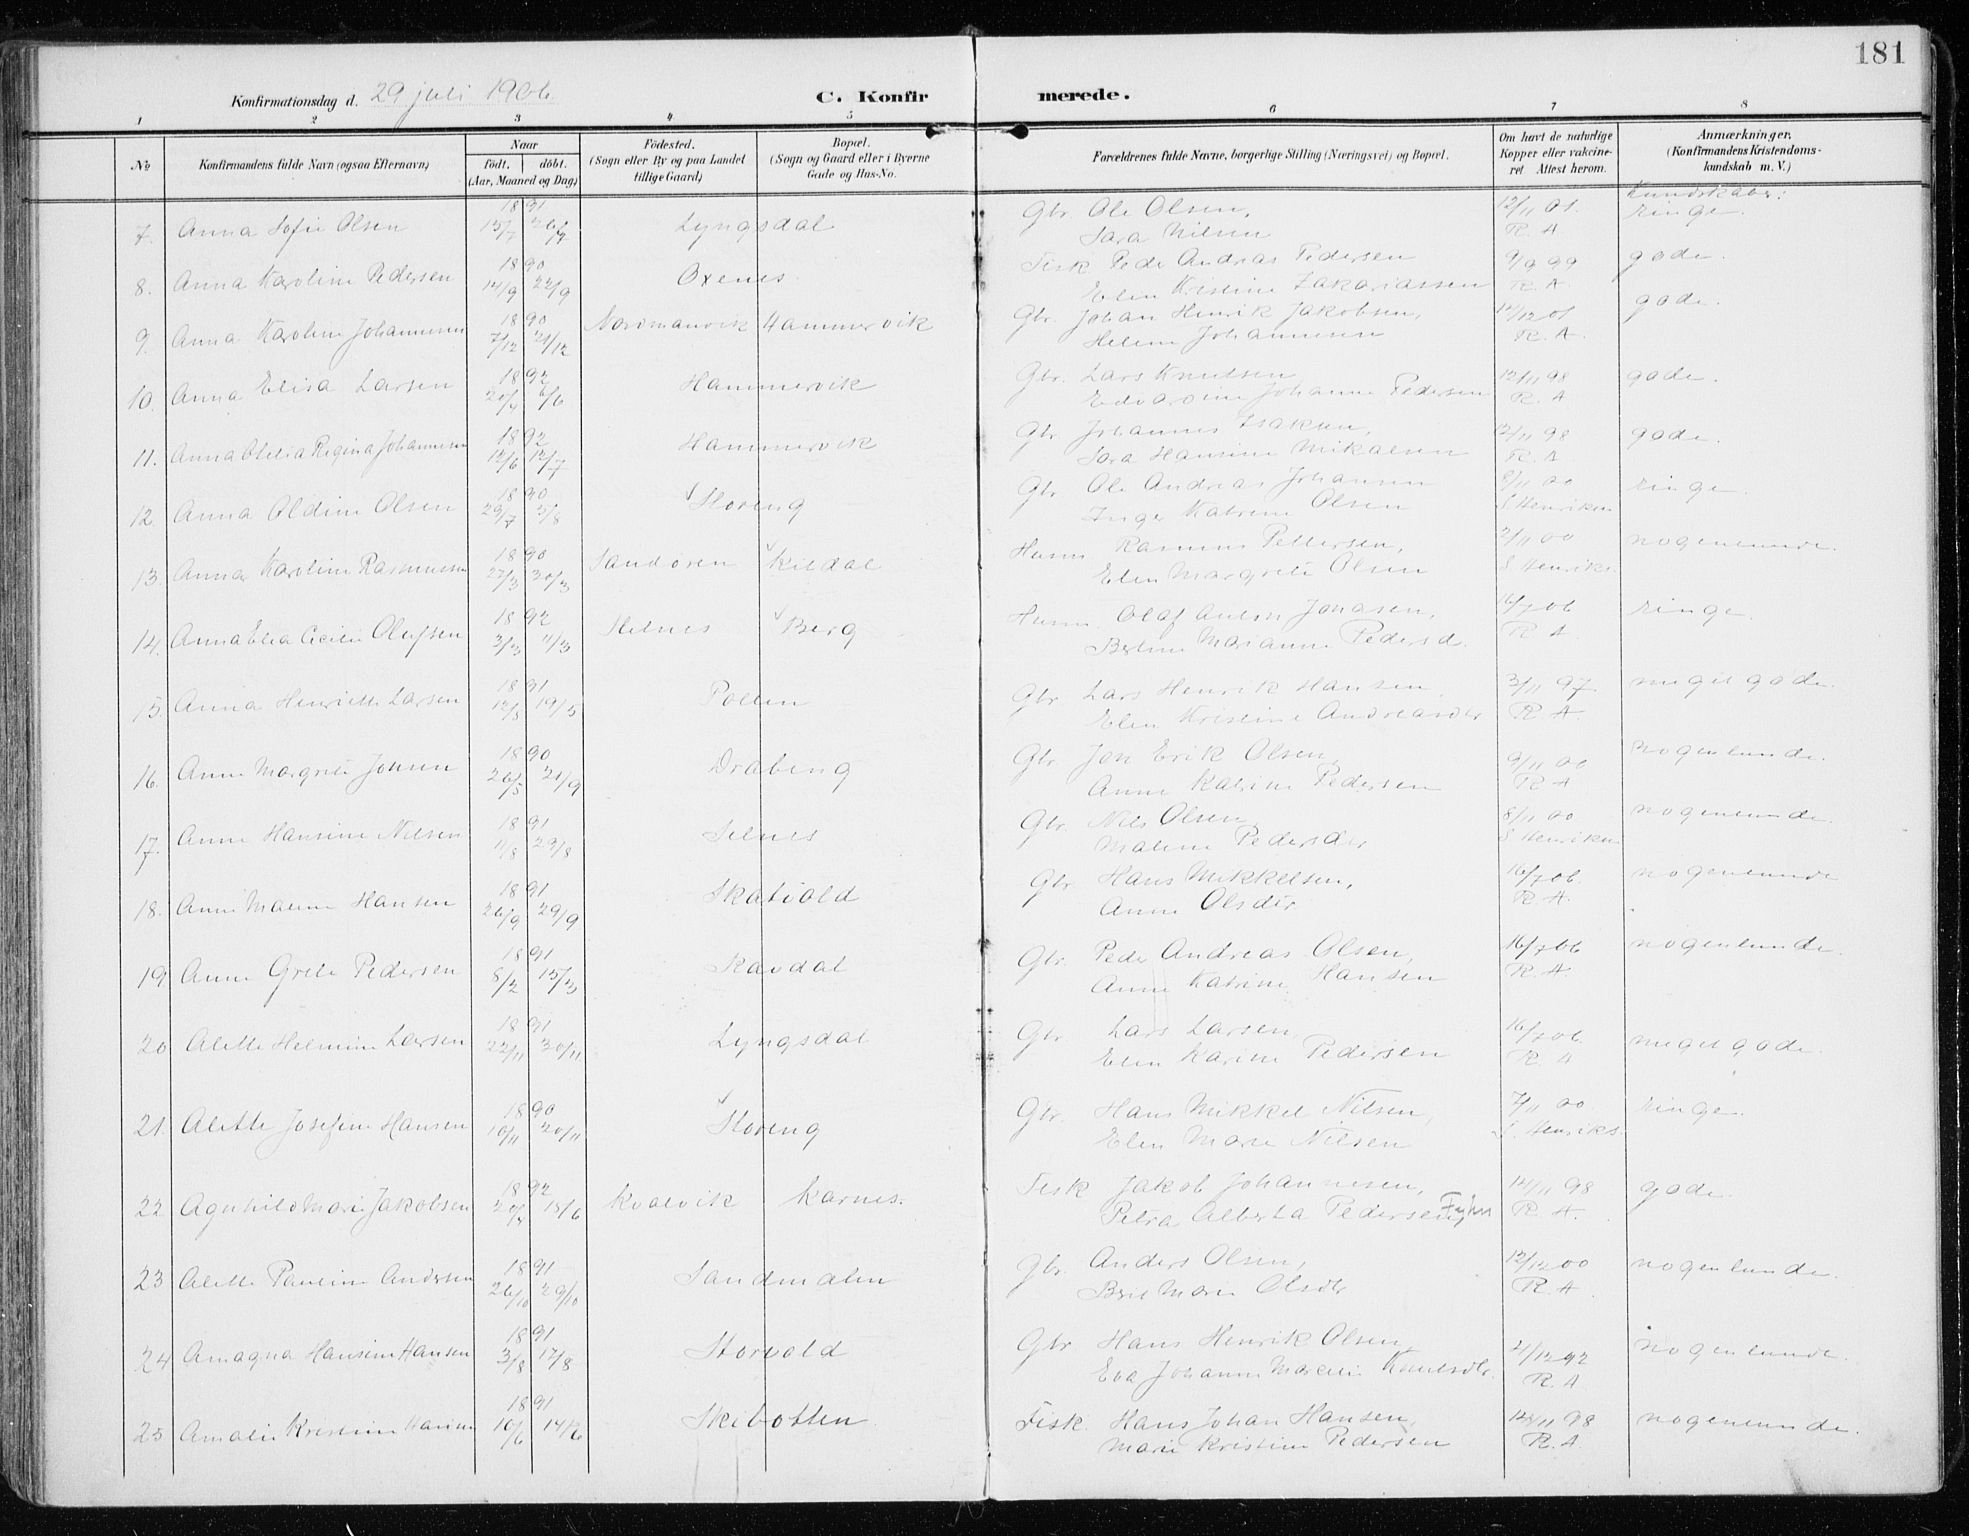 181
Konfirmationsdag d. 29 juli 1906.
C. Konfirmerede.
1 2 3 4 5 6 7 8
No Konfirmandens fulde Navn (ogsaa Efternavn) Naar født. døbt. (Aar, Maaned og Dag) Fødested. (Sogn eller By og paa Landet tillige Gaard) Bopæl. (Sogn og Gaard eller i Byerne Gade og Hus-No. Forældrenes fulde Navne, borgerlige Stilling (Næringsvei) og Bopæl. Om havt de naturlige Kopper eller vakcineret. Attest herom. Anmærkninger. (Konfirmandens Kristendomskundskab m. V.)
Kundskaber:
7. Anna Sofie Olsen 1891 15/7 26/7 Lyngsdal Gbr. Ole Olsen, 12/11 01. ringe.
Sara Nilsen R. A
8. Anna Karoline Pedersen 1890 14/9 22/9 Oxenes Fisk Peder Andreas Pedersen 9/9 99 gode.
Elen Kristine Zakariassen R. A.
9. Anna Karoline Johannesen 1890 7/12 21/12 Nordmanvik Hammervik Gbr. Johan Henrik Jakobsen, 12/12 01 gode.
Helene Johannesen R. A.
10. Anna Elisa Larsen 1892 20/4 6/6 Hammervik Gbr. Lars Knutsen 12/11 98 gode.
Edvardine Johanne Pedersen R. A
11. Anna Otelia Regina Johannesen 1892 12/6 12/7 Hammervik Gbr. Johannes Isaksen, 12/11 98 gode.
Sara Hansine Mikalsen R. A
12. Anna Oldine Olsen 1890 29/7 5/8 Storeng Gbr. Ole Andreas Johansen 8/11 00 ringe.
Inger Katrine Olsen S Henriksen
13. Anna Karoline Rasmussen 1890 27/3 30/3 Sandøren Kildal Husm Rasmus Pettersen, 2/11 00 nogenlunde.
Elen Margrete Olsen S Henriks.
14. Anna Elea Cecilie Olufsen 1892 3/3 11/3 Selnes Berg Husm. Olaf Jonasen, 16/7 06 ringe.
Berline Marianne Pedersd. R A
15. Anna Henriette Larsen 1891 12/5 19/5 Pollen Gbr Lars Henrik Hansen, 3/11 97. meget gode.
Elen Kristine Andreasdtr R A
16. Anne Margrete Jonsen 1890 26/5 21/9 Drabeng Gbr. Jon Erik Olsen, 9/11 00 nogenlunde.
Anne Katrine Pedersen R A
17. Anne Hansine Nilsen 1891 11/8 23/8 Selnes Gbr. Nils Olsen, 8/11 00 nogenlunde.
Malene Pedersdtr S Henriksen
18. Anne Malene Hansen 1891 26/9 29/9 Skatvold Gbr Hans Mikkelsen, 16/7 06. nogenlunde
Anne Olsdtr R. A.
19 Anne Grete Pedersen 1891 8/2 15/3 Skardal Gbr. Peder Andreas Olsen, 16/7 06 nogenlunde.
Anne Katrine Hansen R. A
20 Alette Helmine Larsen 1891 22/11 30/11 Lyngsdal Gbr Lars Larsen, 16/7 06. meget gode.
Elen Karine Pedersen R. A
21. Alette Josefine Hansen 1890 10/11 20/11 Storeng Gbr. Hans Mikkel Nilsen, 7/11 00 ringe.
Elen Marie Nilsen S. Henriks.
22 Agnhild Marie Jakobsen 1892 20/4 15/6 Kvalvik Karnes. Fisk Jakob Johannesen, 14/11 98 gode.
Petra Alberta Pedersen Fyhn R. A.
23 Alette Pauline Andersen 1891 26/10 29/10 Sandmalen Gbr. Anders Olsen, 12/12 00 nogenlunde.
Berit Marie Olsdtr R. A
24 Amagna Hansine Hansen 1891 3/8 17/8 Storvold Gbr Hans Henrik Olsen, 4/12 92 nogenlunde.
Eva Johanne Marcelie Knutsdtr. R. A
25 Amalie Kristine Hansen 1891 10/6 14/6 Skibotten Fisk. Hans Johan Hansen, 12/11 98 nogenlunde.
Marie Kristine Pedersen R. A